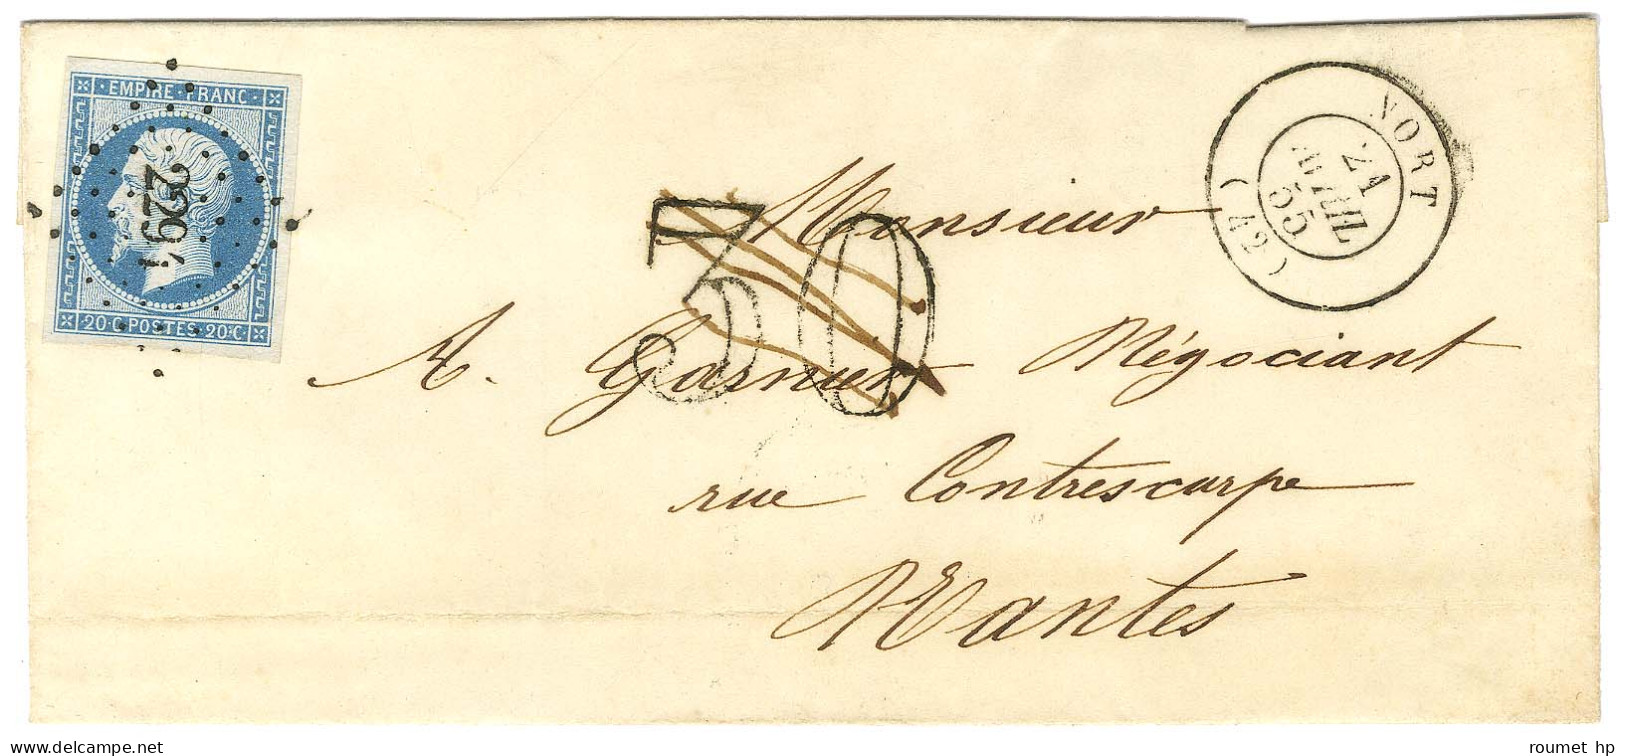 EMPIRE · FRANC ·
2291
20 · C POSTES 20 · C
NORT
21
AVRIL
55
(42)
30
Monsieur
A. Garnier Négociant
rue Contrescarpe
Nantes
roumet hp www.delcampe.net